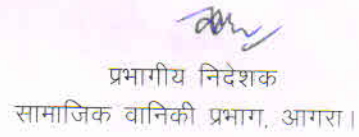 प्रभागीय निदेशक
सामाजिक वानिकी प्रभाग, आगरा।